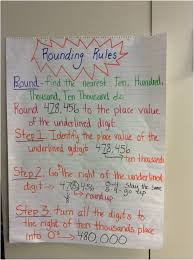 Rounding Rules
Round-find the nearest Ten, Hundred,
Thousand, Ten Thousand etc.
Round 478,456 to the place value
of the underlined digit.
Step 1. Identify the place value of the
underlined digit 478,456
→ ten thousands
Step 2. Go the right of the underlined
digit → 478,456 stay the same
round up
Step 3. turn all the digits to
the right of ten thousands place
into 0's → 480,000